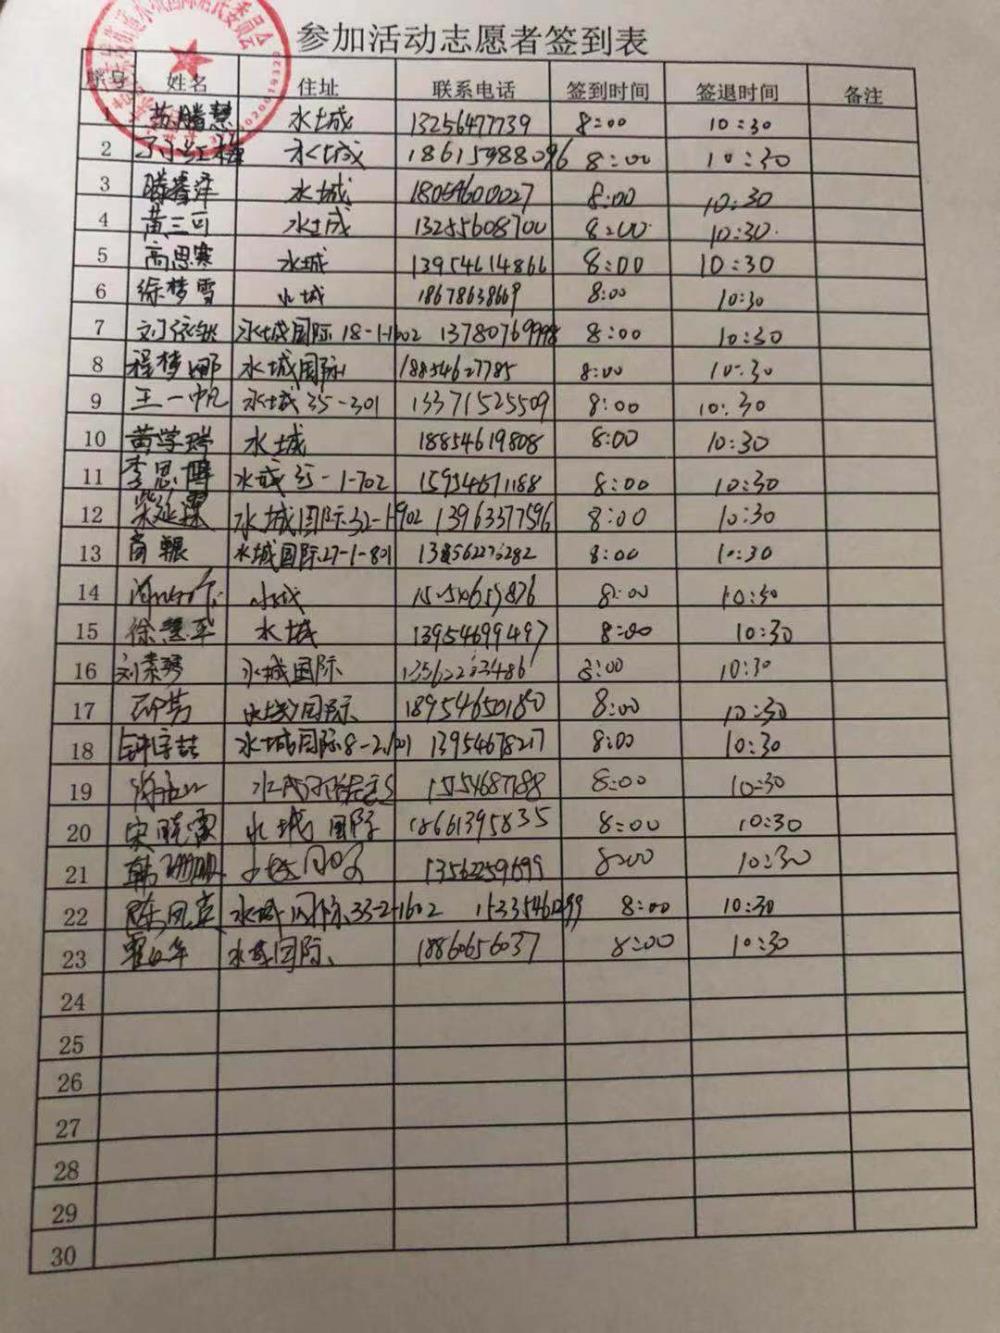 参加活动志愿者签到表
序号 姓名 住址 联系电话 签到时间 签退时间 备注
1 苏腾慧 水城 13256477739 8:00 10:30
2 水城 18615988096 8:00 10:30
3 滕睿泽 水城 18054600027 8:00 10:30
4 黄三可 水城 13255608700 8:00 10:30
5 高思寒 水城 13954614866 8:00 10:30
6 徐梦雪 水城 18678638669 8:00 10:30
7 水城国际18-1-1602 13780769998 8:00 10:30
8 程梦娜 水城国际 18854627785 8:00 10:30
9 王一帆 水城35-301 13371525509 8:00 10:30
10 黄学瑞 水城 18854619808 8:00 10:30
11 李思 水城35-1-702 15954671188 8:00 10:30
12 水城国际32-1-902 13963377596 8:00 10:30
13 水城国际27-1-801 8:00 10:30
14 水城 8:00 10:30
15 徐慧军 水城 13954699497 8:00 10:30
16 水城国际 8:00 10:30
17 水城国际 18954650180 8:00 10:30
18 水城国际8-2 13954678217 8:00 10:30
19 8:00 10:30
20 宋晓霞 水城国际 18661395835 8:00 10:30
21 韩珊珊 13562259699 8:00 10:30
22 陈凤英 水城国际33-2-1602 8:00 10:30
23 水城国际 18860656037 8:00 10:30
24
25
26
27
28
29
30